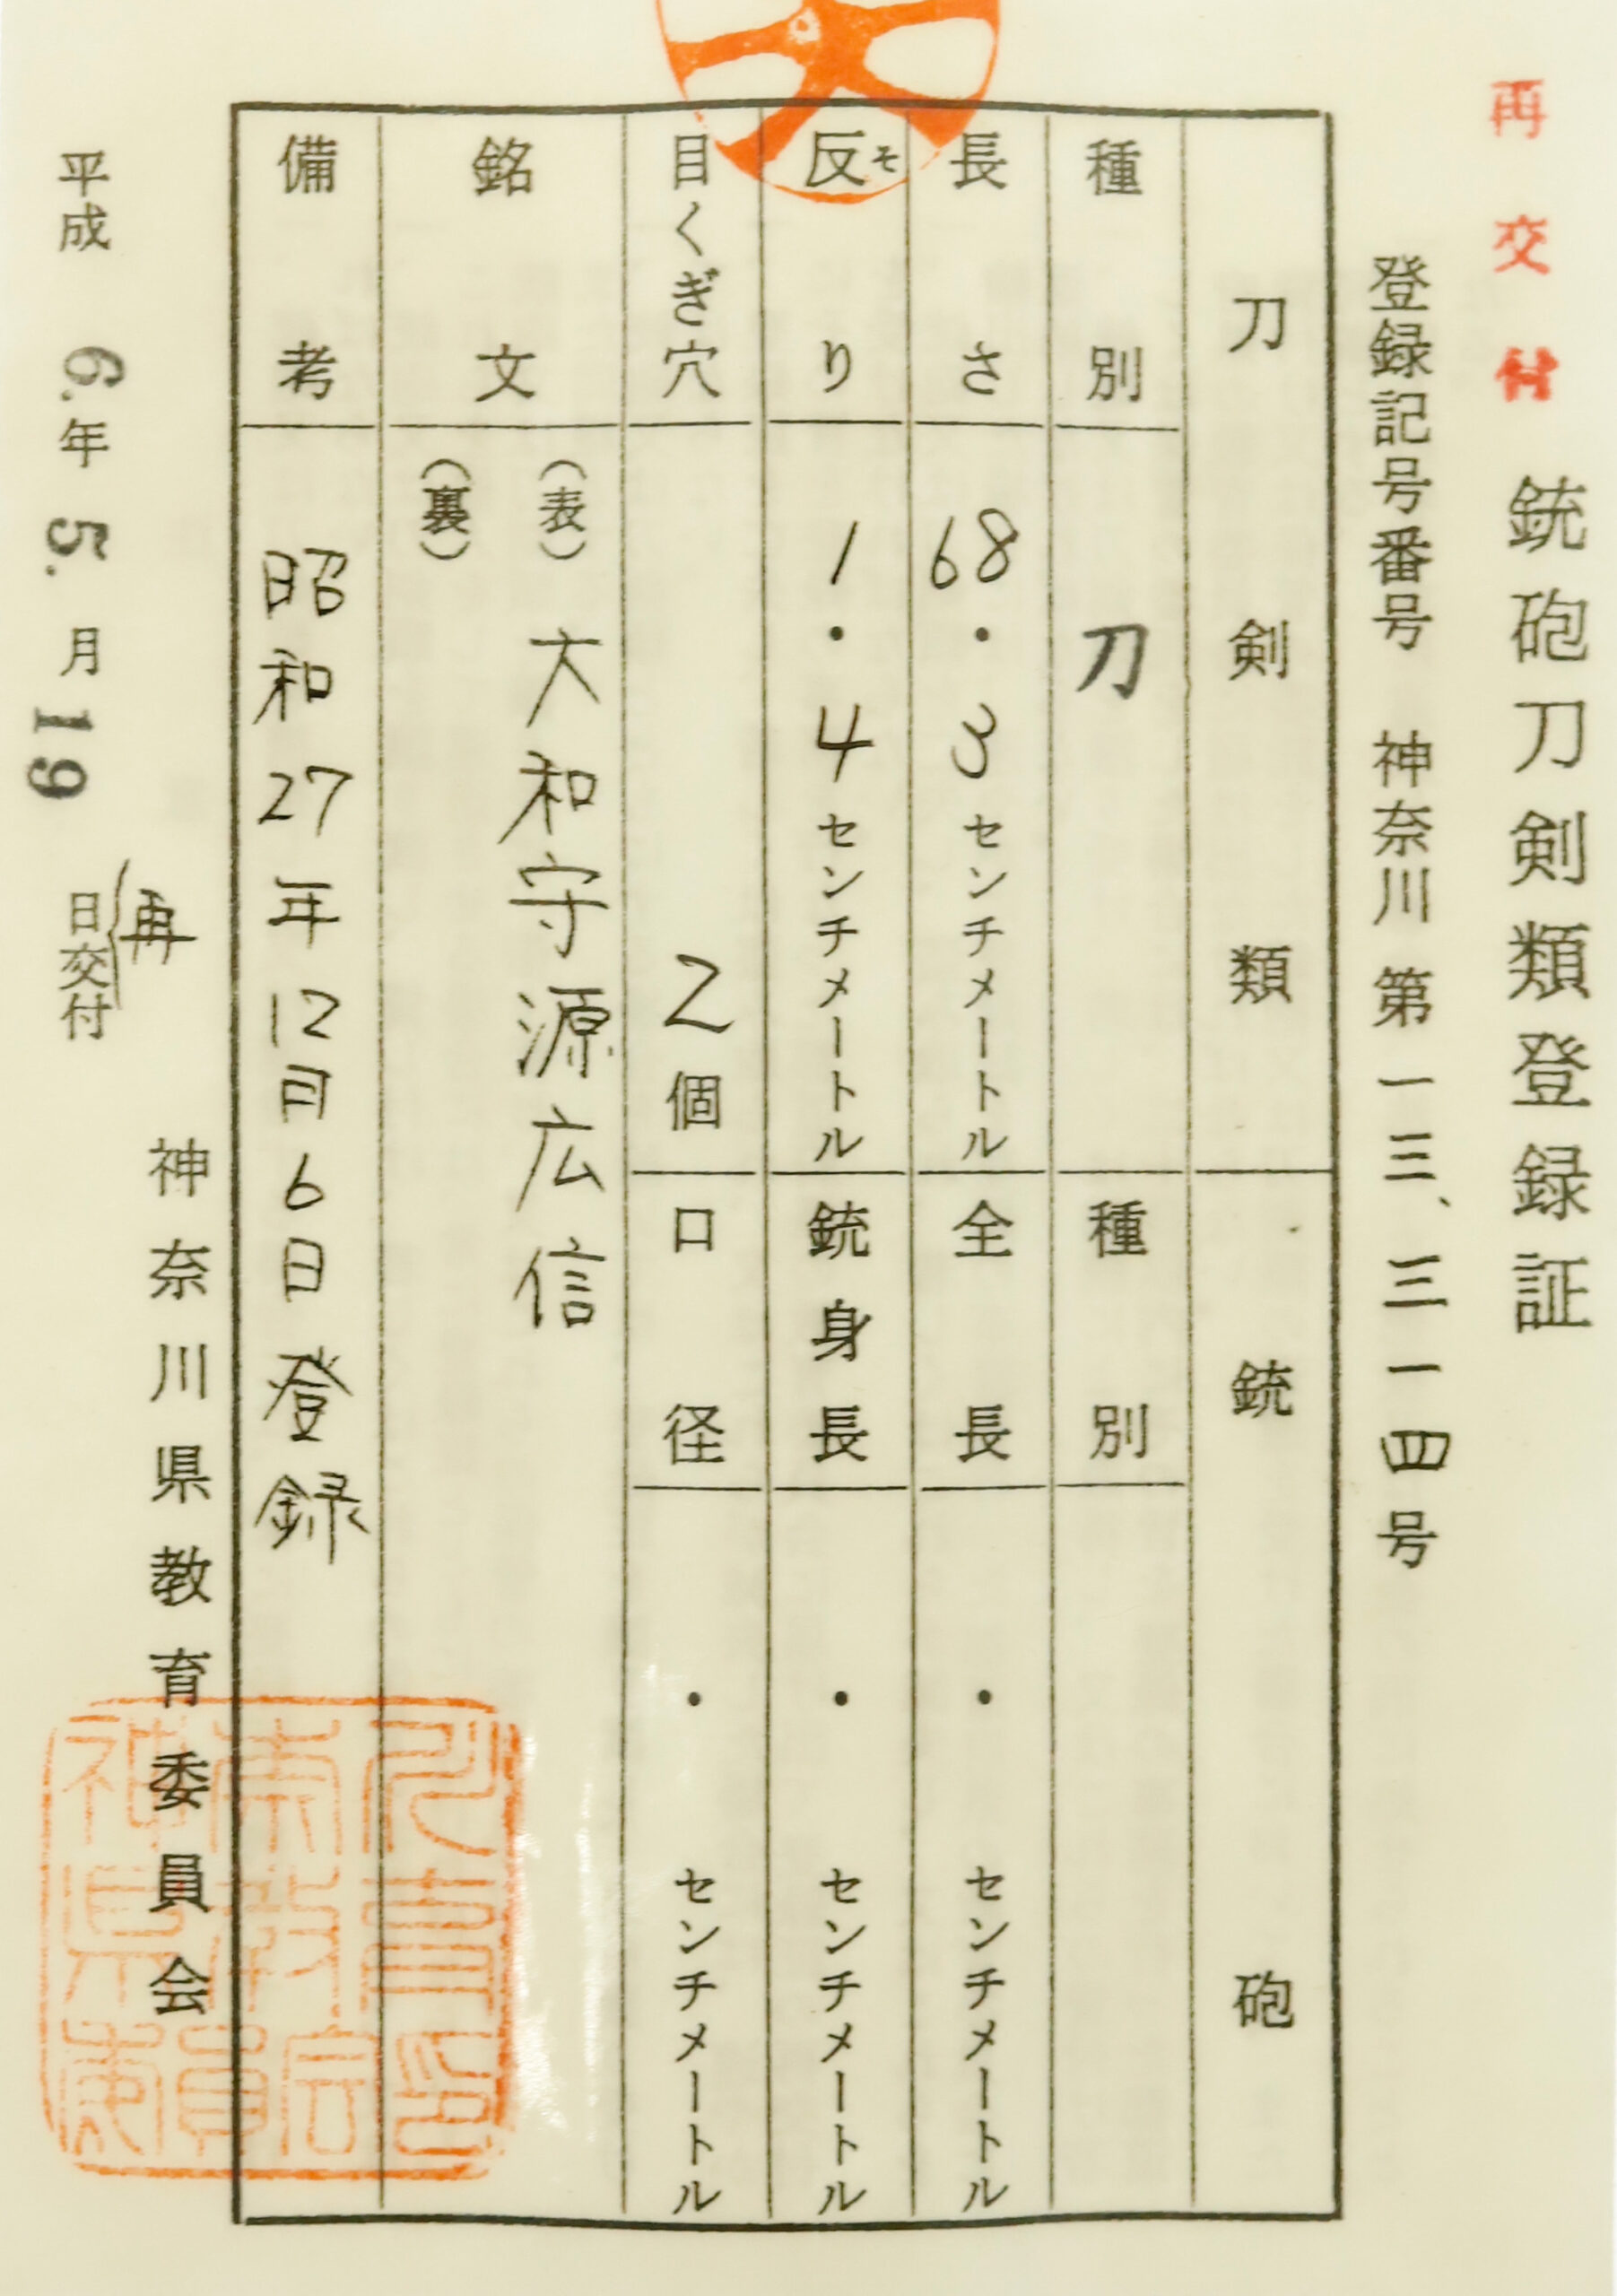 再交付
銃砲刀剣類登録証
登録記号番号 神奈川 第一三、三一四号
刀剣類
銃砲
種別 刀
種別
長さ 68・3センチメートル
全長 ・ センチメートル
反り そ 1・4センチメートル
銃身長 ・ センチメートル
目くぎ穴 2個
口径 ・ センチメートル
銘文 (表) 大和守源広信
(裏)
備考 昭和27年12月6日登録
神奈川県教育委員会
再
平成 6.年 5.月 19 日交付